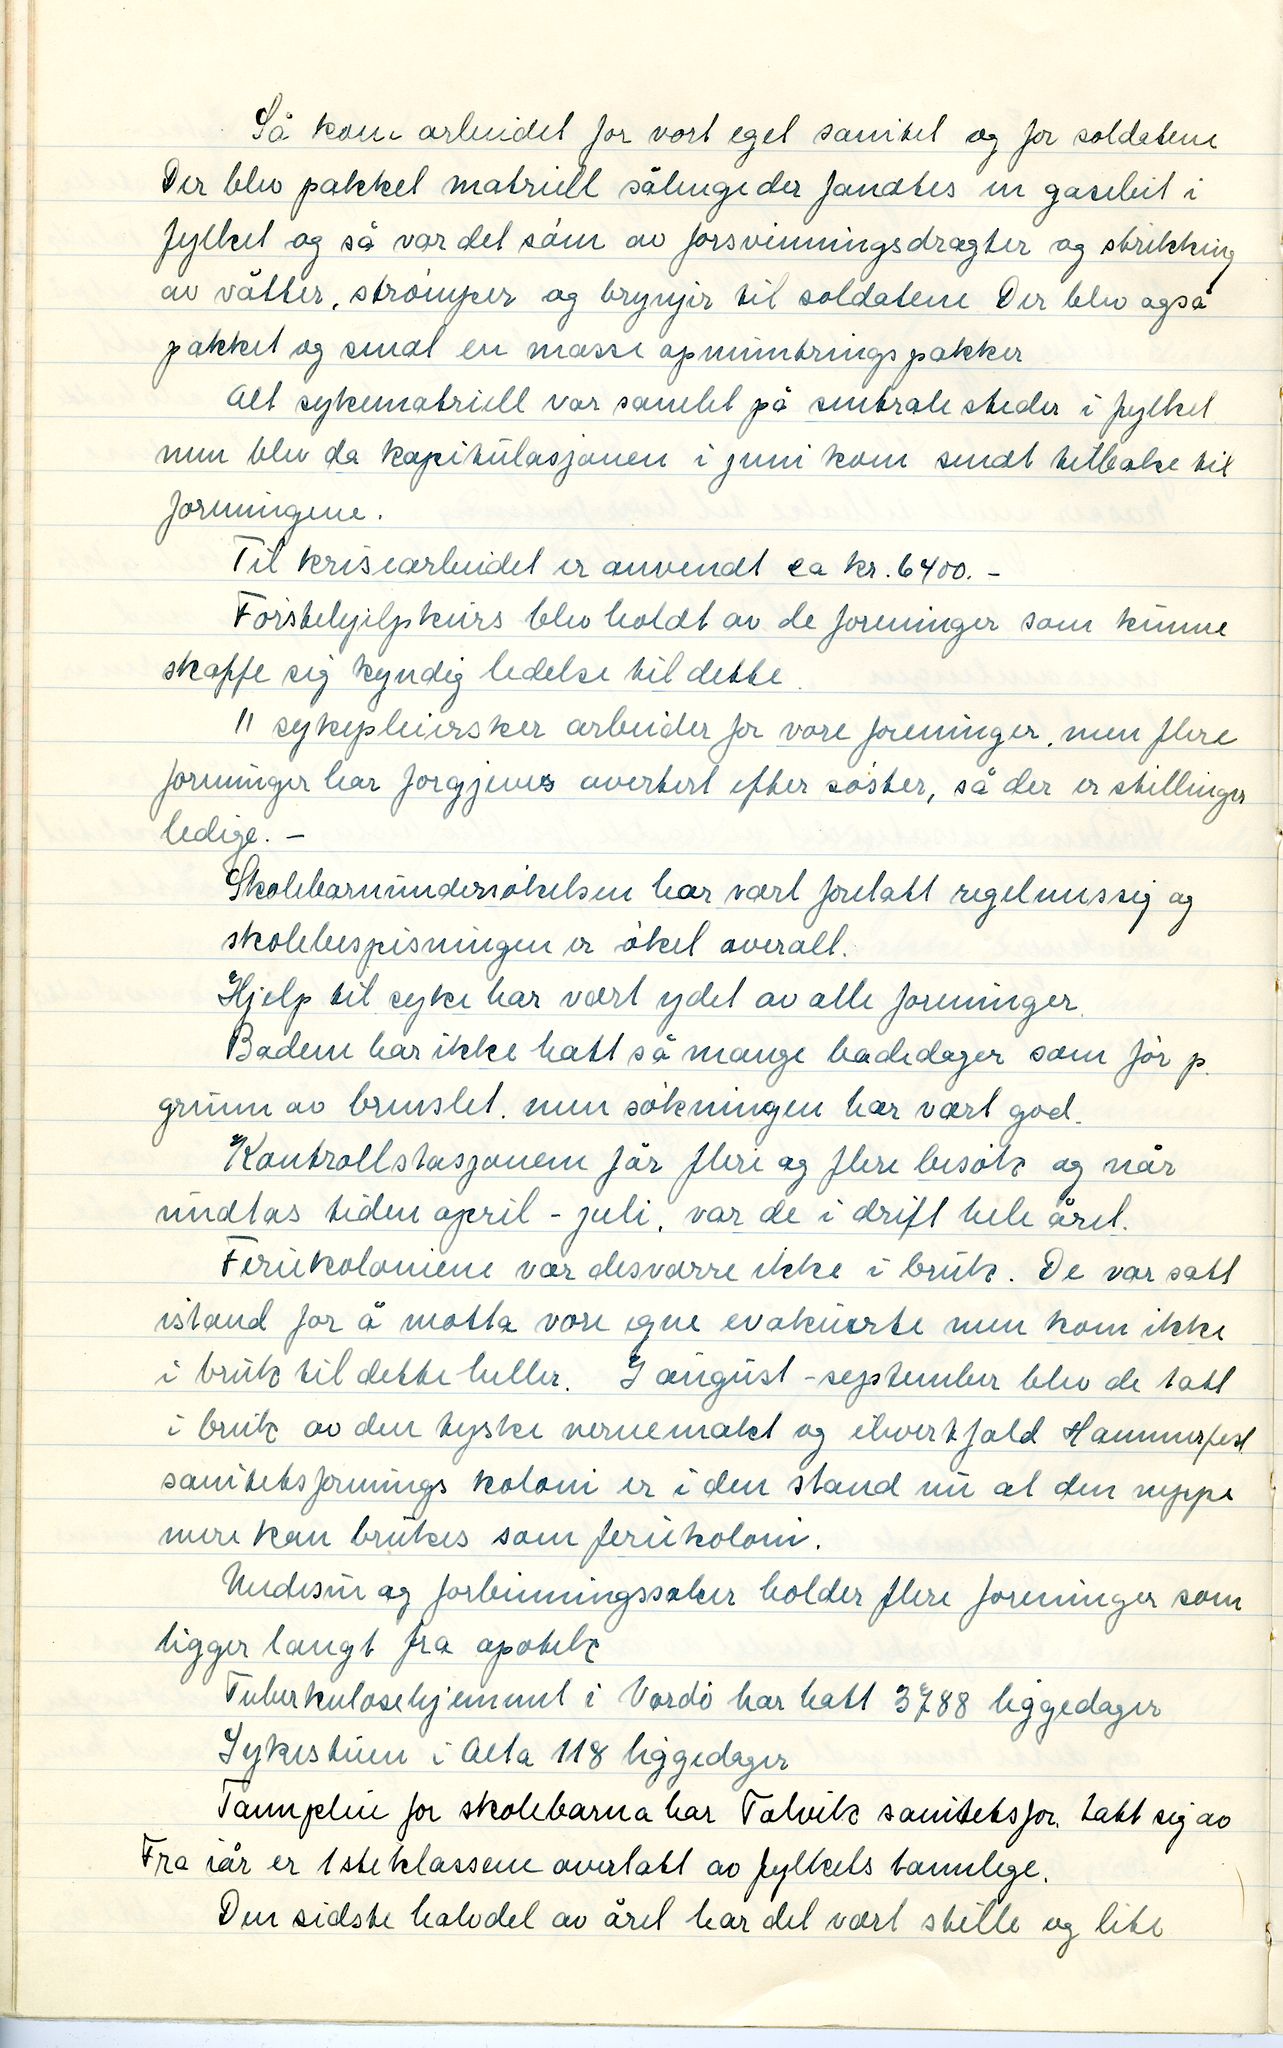 Så kom arbeidet for vort eget sanitet og for soldatene
Der blev pakket matriell sålenge der fandtes en gasebit i
fylket og så var det søm av forsvinningsdragter og strikking
av våtter, strømper og brynjer til soldatene Der blev også
pakket og sendt en masse opmuntringspakker
Alt sykematriell var samlet på sentrale steder i fylket
men blev da kapitulasjonen i juni kom sendt tilbake til
foreningene.
Til krisearbeidet er anvendt ca kr. 6400.-
Førstehjelpkurs blev holdt av de foreninger som kunne
skaffe sig kyndig ledelse til dette.
11 sykepleiersker arbeider for vore foreninger, men flere
foreninger har forgjeves avertert efter søster, så der er stillinger
ledige. -
Skolebarnundersøkelsen har vært foretatt regelmessig og
skolebespisningen er øket overalt.
Hjelp til syke har vært ydet av alle foreninger.
Badene har ikke hatt så mange badedager som før p.
grunn av brenslet. men søkningen har vært god.
Kontrollstasjonene får flere og flere besøk og når
undtas tiden april - juli, var de i drift hele året.
Feriekoloniene var desværre ikke i bruk. De var satt
istand for å motta vore egne evakuerte men kom ikke
i bruk til dette heller. I august - september blev de tatt
i bruk av den tyske vernemakt og ihvertfald Hammerfest
sanitetsforenings koloni er i den stand nu at den neppe
mere kan brukes som feriekoloni.
Medisin og forbinningssaker holder flere foreninger som
ligger langt fra apotek
Tuberkulosehjemmet i Vardø har hatt 3788 liggedager
Sykestuen i Alta 118 liggedager
Tannpleie for skolebarna har Talvik sanitetsfor. tatt sig av
Fra iår er 1steklassene overtatt av fylkets tannlege.
Den sidste halvdel av året har det vært stille og lite